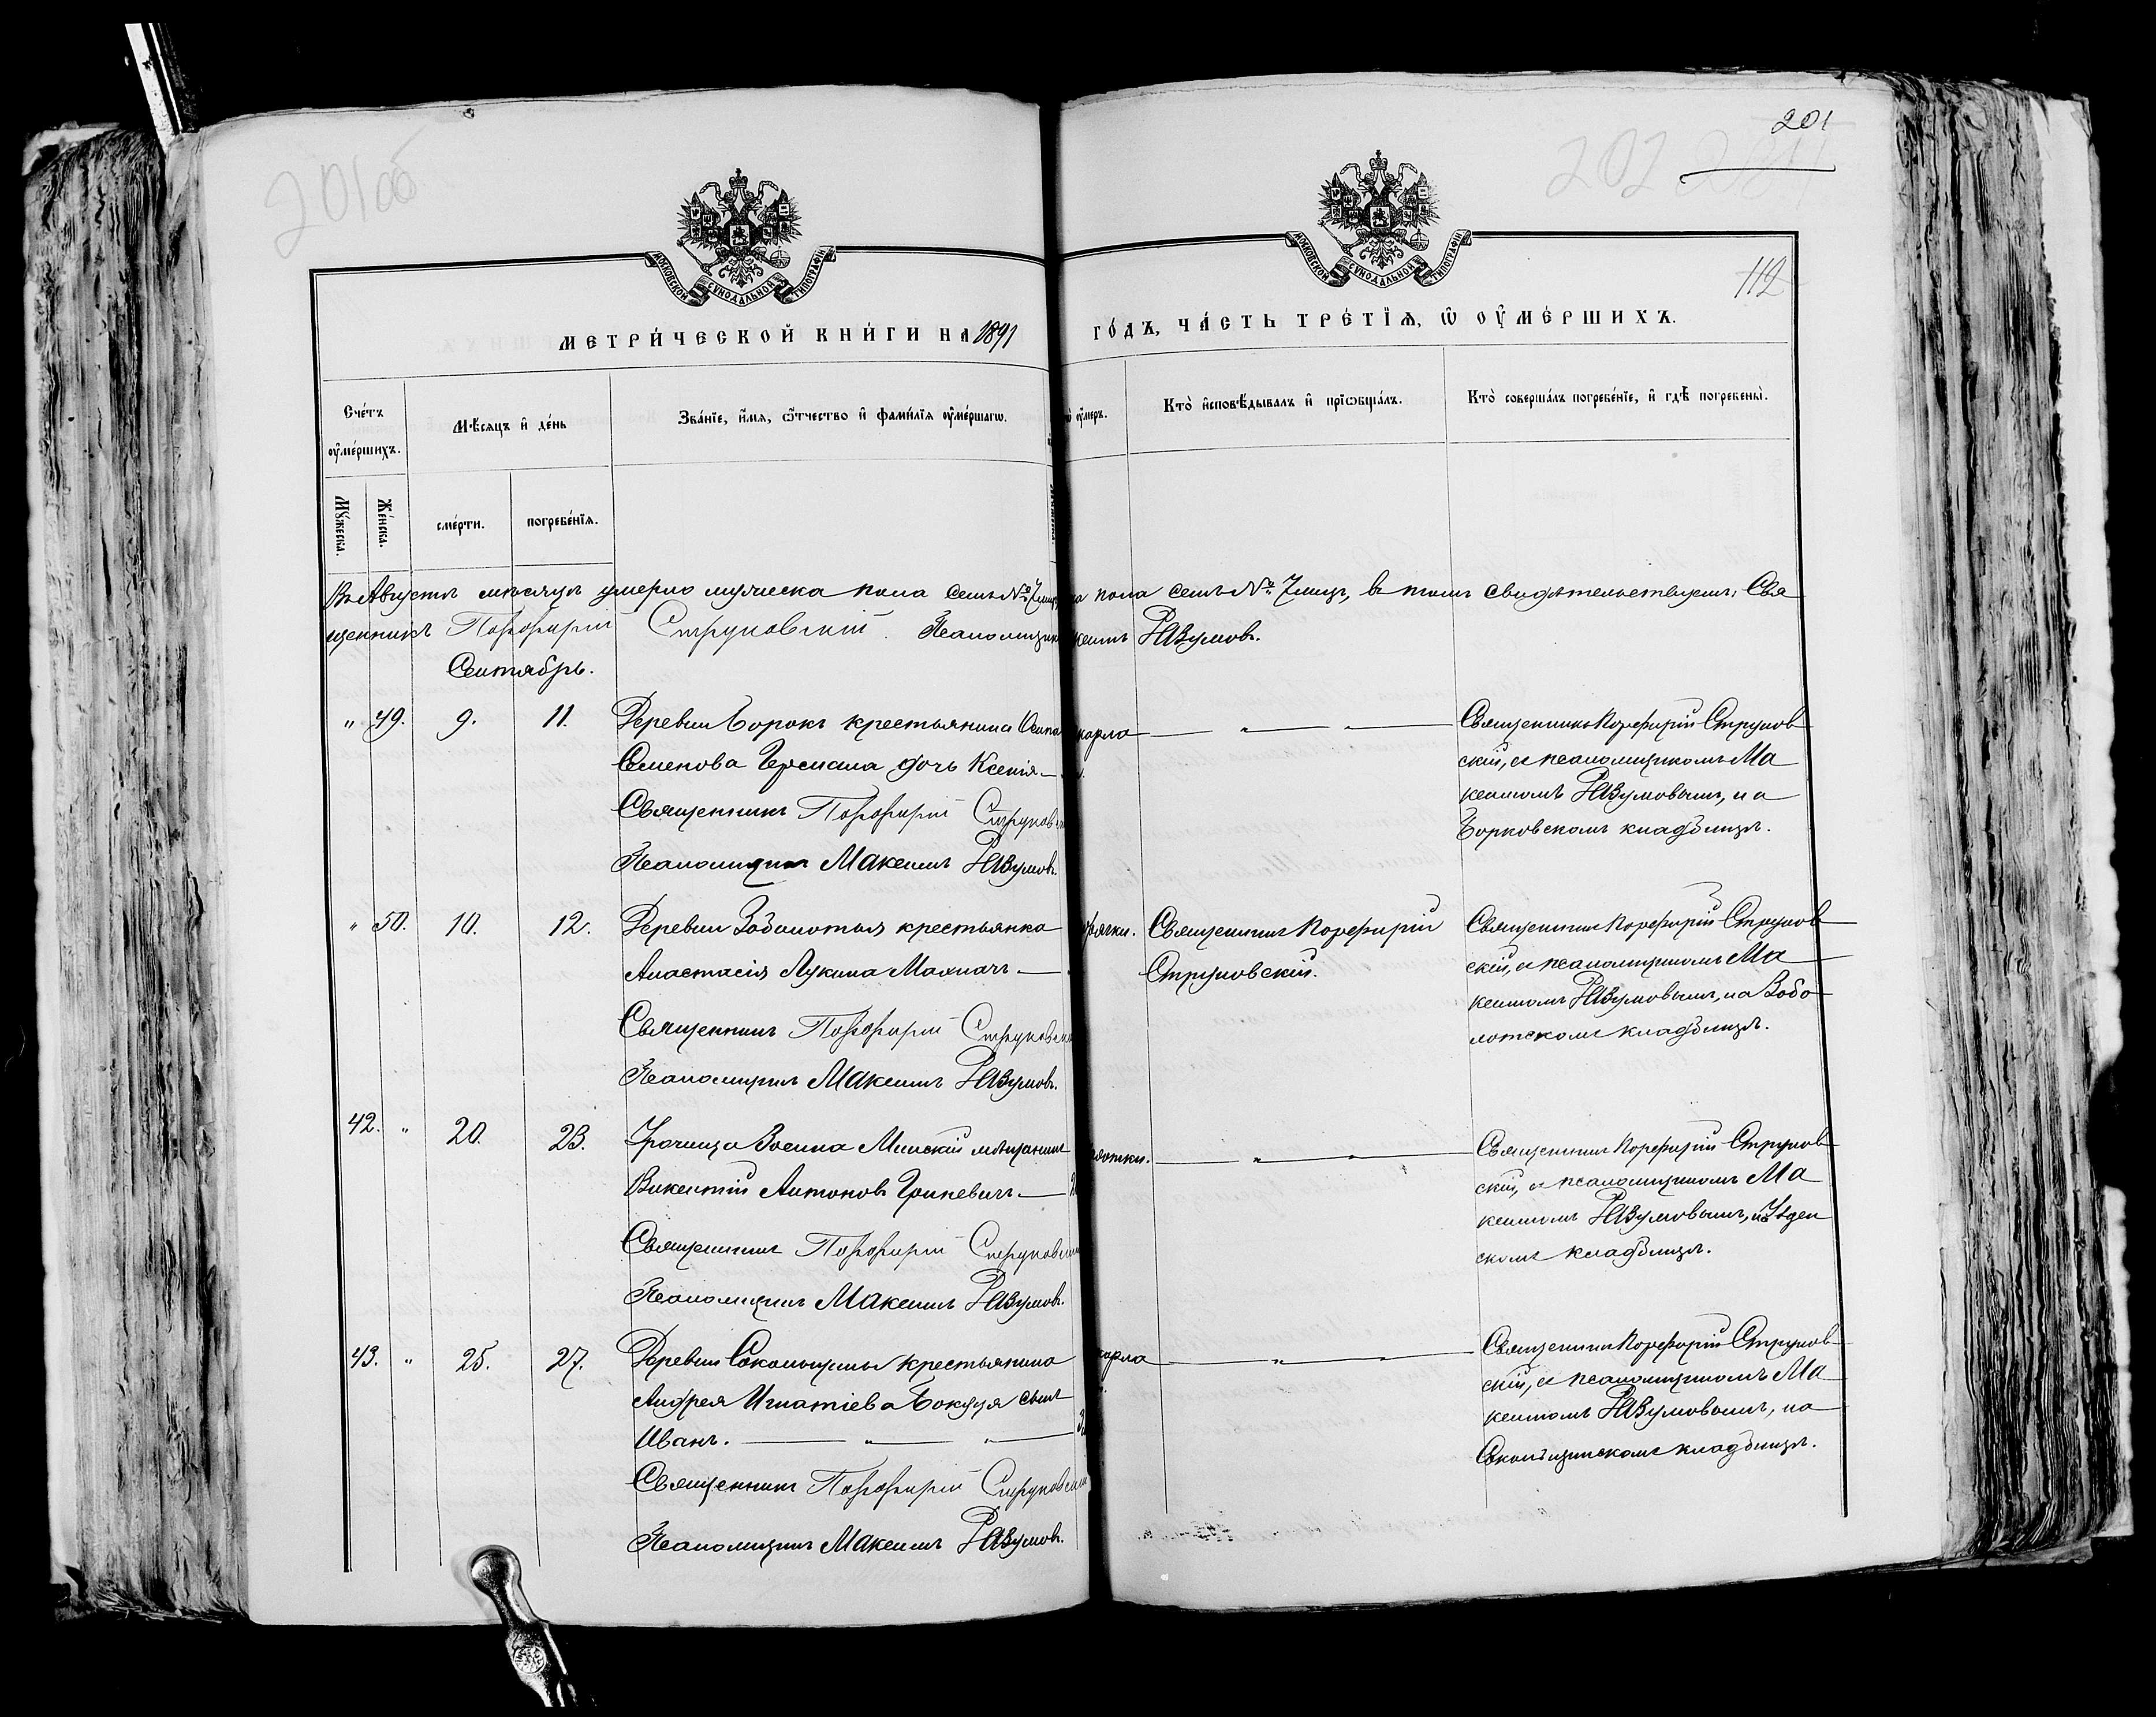 201об
201
202
112
МОСКОВСКОЙ СѴНОДАЛЬНОЙ ТИПОГРАФІИ
МОСКОВСКОЙ СѴНОДАЛЬНОЙ ТИПОГРАФІИ
МЕТРИ́ЧЕСКОЙ КНИ́ГИ НА 1891 ГО́ДЪ, ЧА́СТЬ ТРЕ́ТЇѦ, Ѡ҆ ОУ҆МЕ́РШИХЪ.
Сче́тъ оу҆ме́ршихъ.
Мꙋ́жеска.
Же́нска.
Мѣ́сяцъ и҆ де́нь
сме́рти.
погребе́нїѧ.
Зва́нїе, и҆́мя, ѻ҆́тчество и҆ фами́лїѧ оу҆ме́ршагѡ.
оу҆́меръ.
Кто̀ и҆сповѣ́дывалъ и҆ прїѡбща́лъ.
Кто̀ соверша́лъ погребе́нїе, и҆ гдѣ̀ погребены̀.
Въ Августѣ мѣсяцѣ умерло мужеска пола семь № 7 лицъ, пола семь № 7 лицъ, въ томъ свидѣтельствуемъ, Свя
щенникъ Порфирій Струковскій. Псаломщикъ Разумовъ.
Сентябрь.
" 49. 9. 11.
Деревни Борокъ крестьянина Осипа
Семенова Германа дочь Ксенія
Священникъ Порфирій Струковскій
Псаломщикъ Максимъ Разумовъ.
" "
Священникъ Порфирій Струков
скій, съ псаломщикомъ Ма
ксимомъ Разумовымъ, на
Борковскомъ кладбищѣ.
" 50. 10. 12.
Деревни Заболотья крестьянка
Анастасія Лукина Махначъ
Священникъ Порфирій Струковскій
Псаломщикъ Максимъ Разумовъ.
Священникъ Порфирій
Струковскій.
Священникъ Порфирій Струков
скій, съ псаломщикомъ Ма
ксимомъ Разумовымъ, на Забо
лотскомъ кладбищѣ.
42. " 20. 23.
Урочища Минскій мѣщанинъ
Викентій Антоновъ Гриневичъ
Священникъ Порфирій Струковскій
Псаломщикъ Максимъ Разумовъ.
" "
Священникъ Порфирій Струков
скій, съ псаломщикомъ Ма
ксимомъ Разумовымъ, на Узден
скомъ кладбищѣ.
43. " 25. 27.
Деревни крестьянина
Андрея Игнатіева сынъ
Иванъ. " "
Священникъ Порфирій Струковскій
Псаломщикъ Максимъ Разумовъ.
" "
Священникъ Порфирій Струков
скій, съ псаломщикомъ Ма
ксимомъ Разумовымъ, на
кладбищѣ.